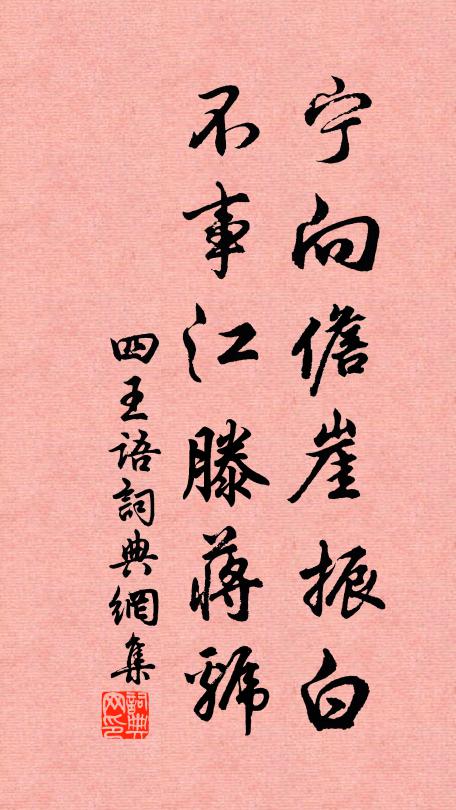 宁向儋崖振白
不事江滕蒋
四王语詞典網集
詞典
网印